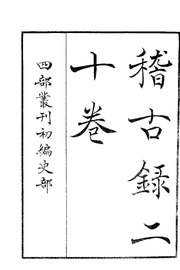 稽古錄二
十卷
四部叢刊初編史部